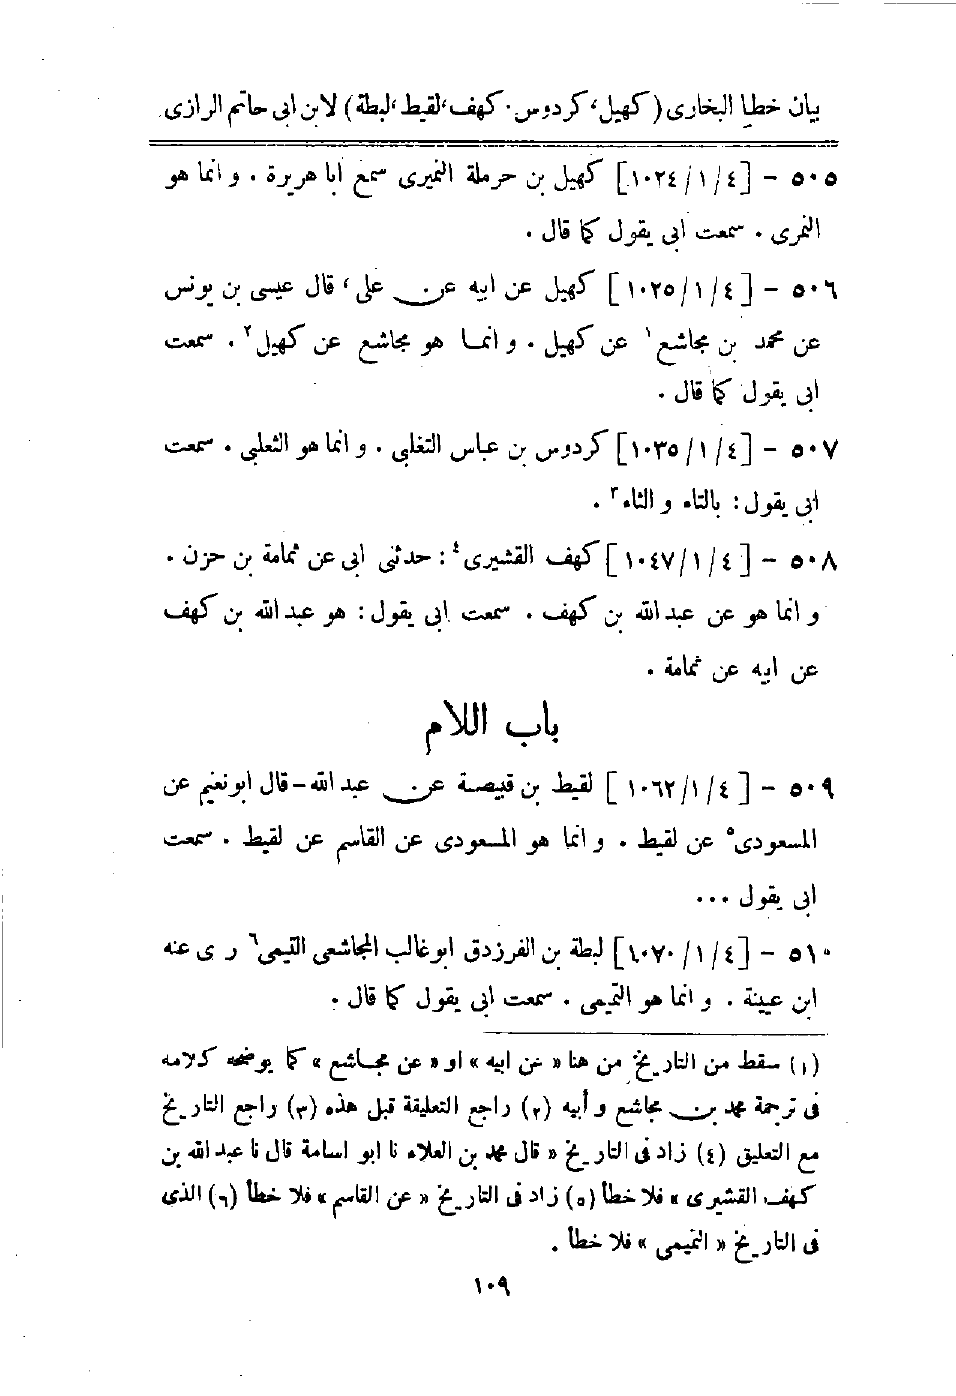 بيان خطأ البخارى (كهيل، كردوس. كهف، لقيط، لبطة) لابن ابى حاتم الرازى
٥٠٥ - [٤/١/١٠٢٤] كهيل بن حرملة النميرى سمع أبا هريرة . و انما هو
النمرى . سمعت ابى يقول كما قال .
٥٠٦ - [٤/١/١٠٢٥] كهيل عن ابيه عن على، قال عيسى بن يونس
عن محمد بن مجاشع ١ عن كهيل . و انما هو مجاشع عن كهيل ٢ . سمعت
ابى يقول كما قال .
٥٠٧ - [٤/١/١٠٣٥] كردوس بن عباس التغلبى . و انما هو الثعلبى . سمعت
ابى يقول: بالتاء و الثاء ٣ .
٥٠٨ - [٤/١/١٠٤٧] كهف القشيرى ٤ : حدثنى ابى عن ثمامة بن حزن .
و انما هو عن عبد الله بن كهف . سمعت ابى يقول: هو عبد الله بن كهف
عن ابيه عن ثمامة .
باب اللام
٥٠٩ - [٤/١/١٠٦٢] لقيط بن قبيصة عن عبد الله - قال ابو نعيم عن
المسعودى ٥ عن لقيط . و انما هو المسعودى عن القاسم عن لقيط . سمعت
ابى يقول ...
٥١٠ - [٤/١/١٠٧٠] لبطة بن الفرزدق ابو غالب المجاشعى التيمى ٦ روى عنه
ابن عيينة . و انما هو التميمى . سمعت ابى يقول كما قال .
(١) سقط من التاريخ من هنا « عن ابيه » او « عن مجاشع » كما يوضحه كلامه
فى ترجمة محمد بن مجاشع و أبيه (٢) راجع التعليقة قبل هذه (٣) راجع التاريخ
مع التعليق (٤) زاد فى التاريخ « قال محمد بن العلاء نا ابو اسامة قال نا عبد الله بن
كهف القشيرى » فلا خطأ (٥) زاد فى التاريخ « عن القاسم » فلا خطأ (٦) الذى
فى التاريخ « التميمى » فلا خطأ .
١٠٩